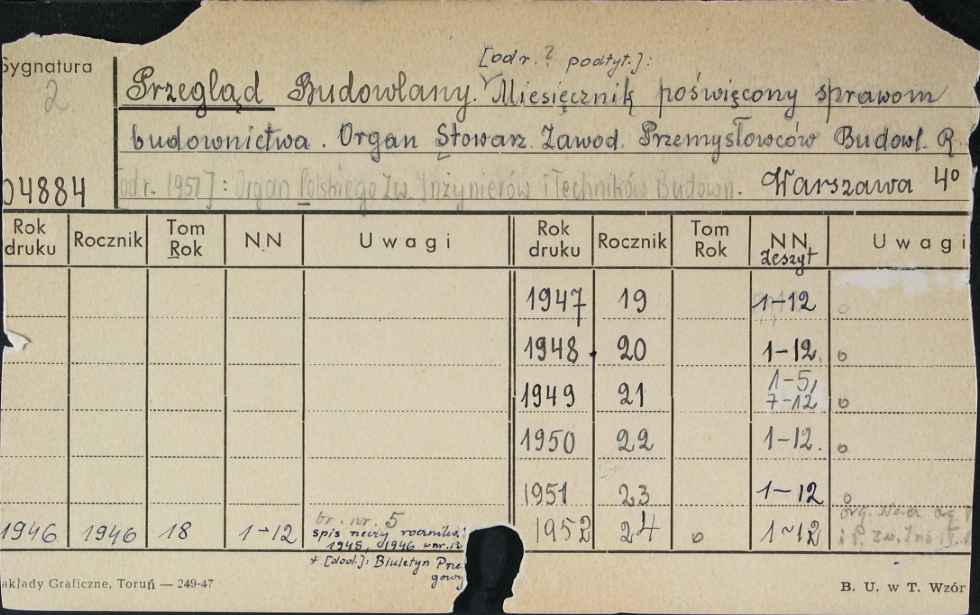 [odr. ? podtyt.]:
Sygnatura
2
Przegląd Budowlany. Miesięcznik poświęcony sprawom
budownictwa. Organ Stowarz. Zawod. Przemysłowców Budowl. R.
04884
[odr. 1951]: Organ Polskiego Zw. Inżynierów i Techników Budown. Warszawa 4°
Rok druku Rocznik Tom Rok N.N Uwagi Rok druku Rocznik Tom Rok N N Zeszyt Uwagi
1947 19 1-12
1948 20 1-12.
1949 21 1-5, 7-12
1950 22 1-12.
1951 23 1-12
1946 1946 18 1-12 br. nr. 5 1952 24 1-12
spis
1945, 1946
* [dod.]: Biuletyn
akłady Graficzne, Toruń — 249-47
B. U. w T. Wzór